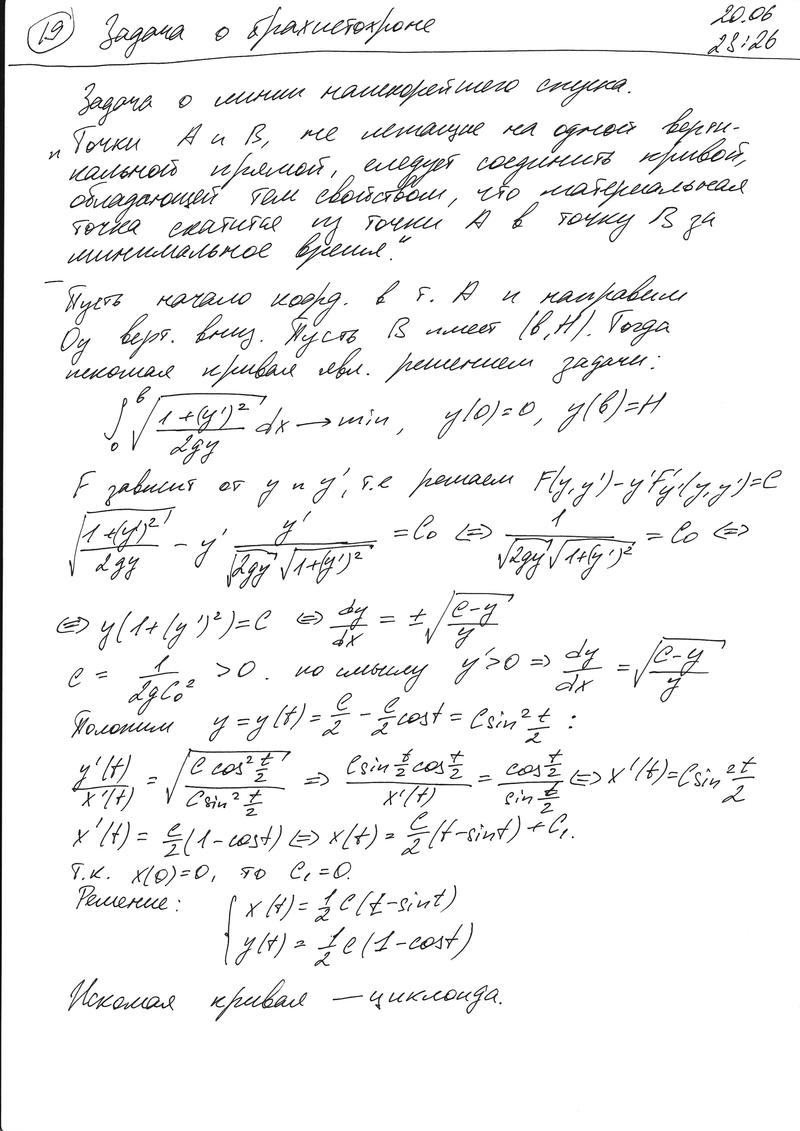 19 Задача о брахистохроне
20.06
23:26
Задача о линии наискорейшего спуска.
"Точки A и B, не лежащие на одной верти-
кальной прямой, следует соединить кривой,
обладающей тем свойством, что материальная
точка скатится из точки A в точку B за
минимальное время."
Пусть начало коорд. в т. A и направим
Oy верт. вниз. Пусть B имеет (b,H). Тогда
искомая кривая явл. решением задачи:
∫₀ᵇ √((1+(y')²)/(2gy)) dx → min, y(0)=0, y(b)=H
F зависит от y и y', т.е решаем F(y,y')-y'F'y'(y,y')=C
√((1+(y')²)/(2gy)) - y' y'/(√(2gy) √(1+(y')²)) = C₀ ⇔ 1/(√(2gy) √(1+(y')²)) = C₀ ⇔
⇔ y(1+(y')²)=C ⇔ dy/dx = ±√((C-y)/y)
C = 1/(2gC₀²) >0. по смыслу y'>0 ⇒ dy/dx = √((C-y)/y)
Положим y=y(t)= C/2 - C/2 cost = C sin² t/2 :
y'(t)/x'(t) = √((C cos² t/2)/(C sin² t/2)) ⇒ (C sin t/2 cos t/2)/x'(t) = (cos t/2)/(sin t/2) ⇔ x'(t)=C sin² t/2
x'(t) = C/2 (1-cost) ⇔ x(t) = C/2 (t-sint)+C₁.
Т.к. x(0)=0, то C₁=0.
Решение: { x(t)= 1/2 C(t-sint)
y(t)= 1/2 C(1-cost)
Искомая кривая — циклоида.